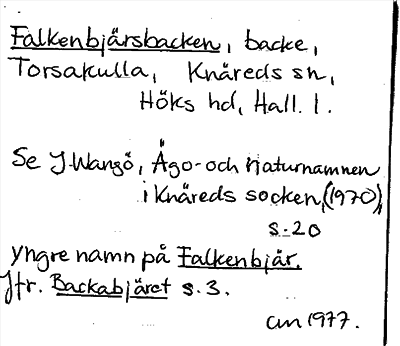 Falkenbjärsbacken, backe,
Torsakulla, Knäreds sn,
Höks hd, Hall. l.
Se J Wangö, Ägo- och naturnamnen
i Knäreds socken, (1970),
s. 20
yngre namn på Falkenbjär.
Jfr. Backabjäret s. 3.
am 1977.